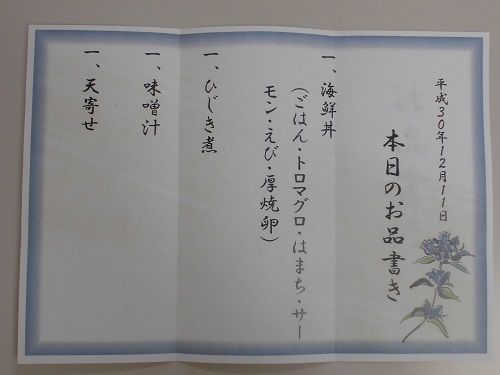 平成30年12月11日
本日のお品書き
一、海鮮丼
（ごはん・トロマグロ・はまち・サー
モン・えび・厚焼卵）
一、ひじき煮
一、味噌汁
一、天寄せ